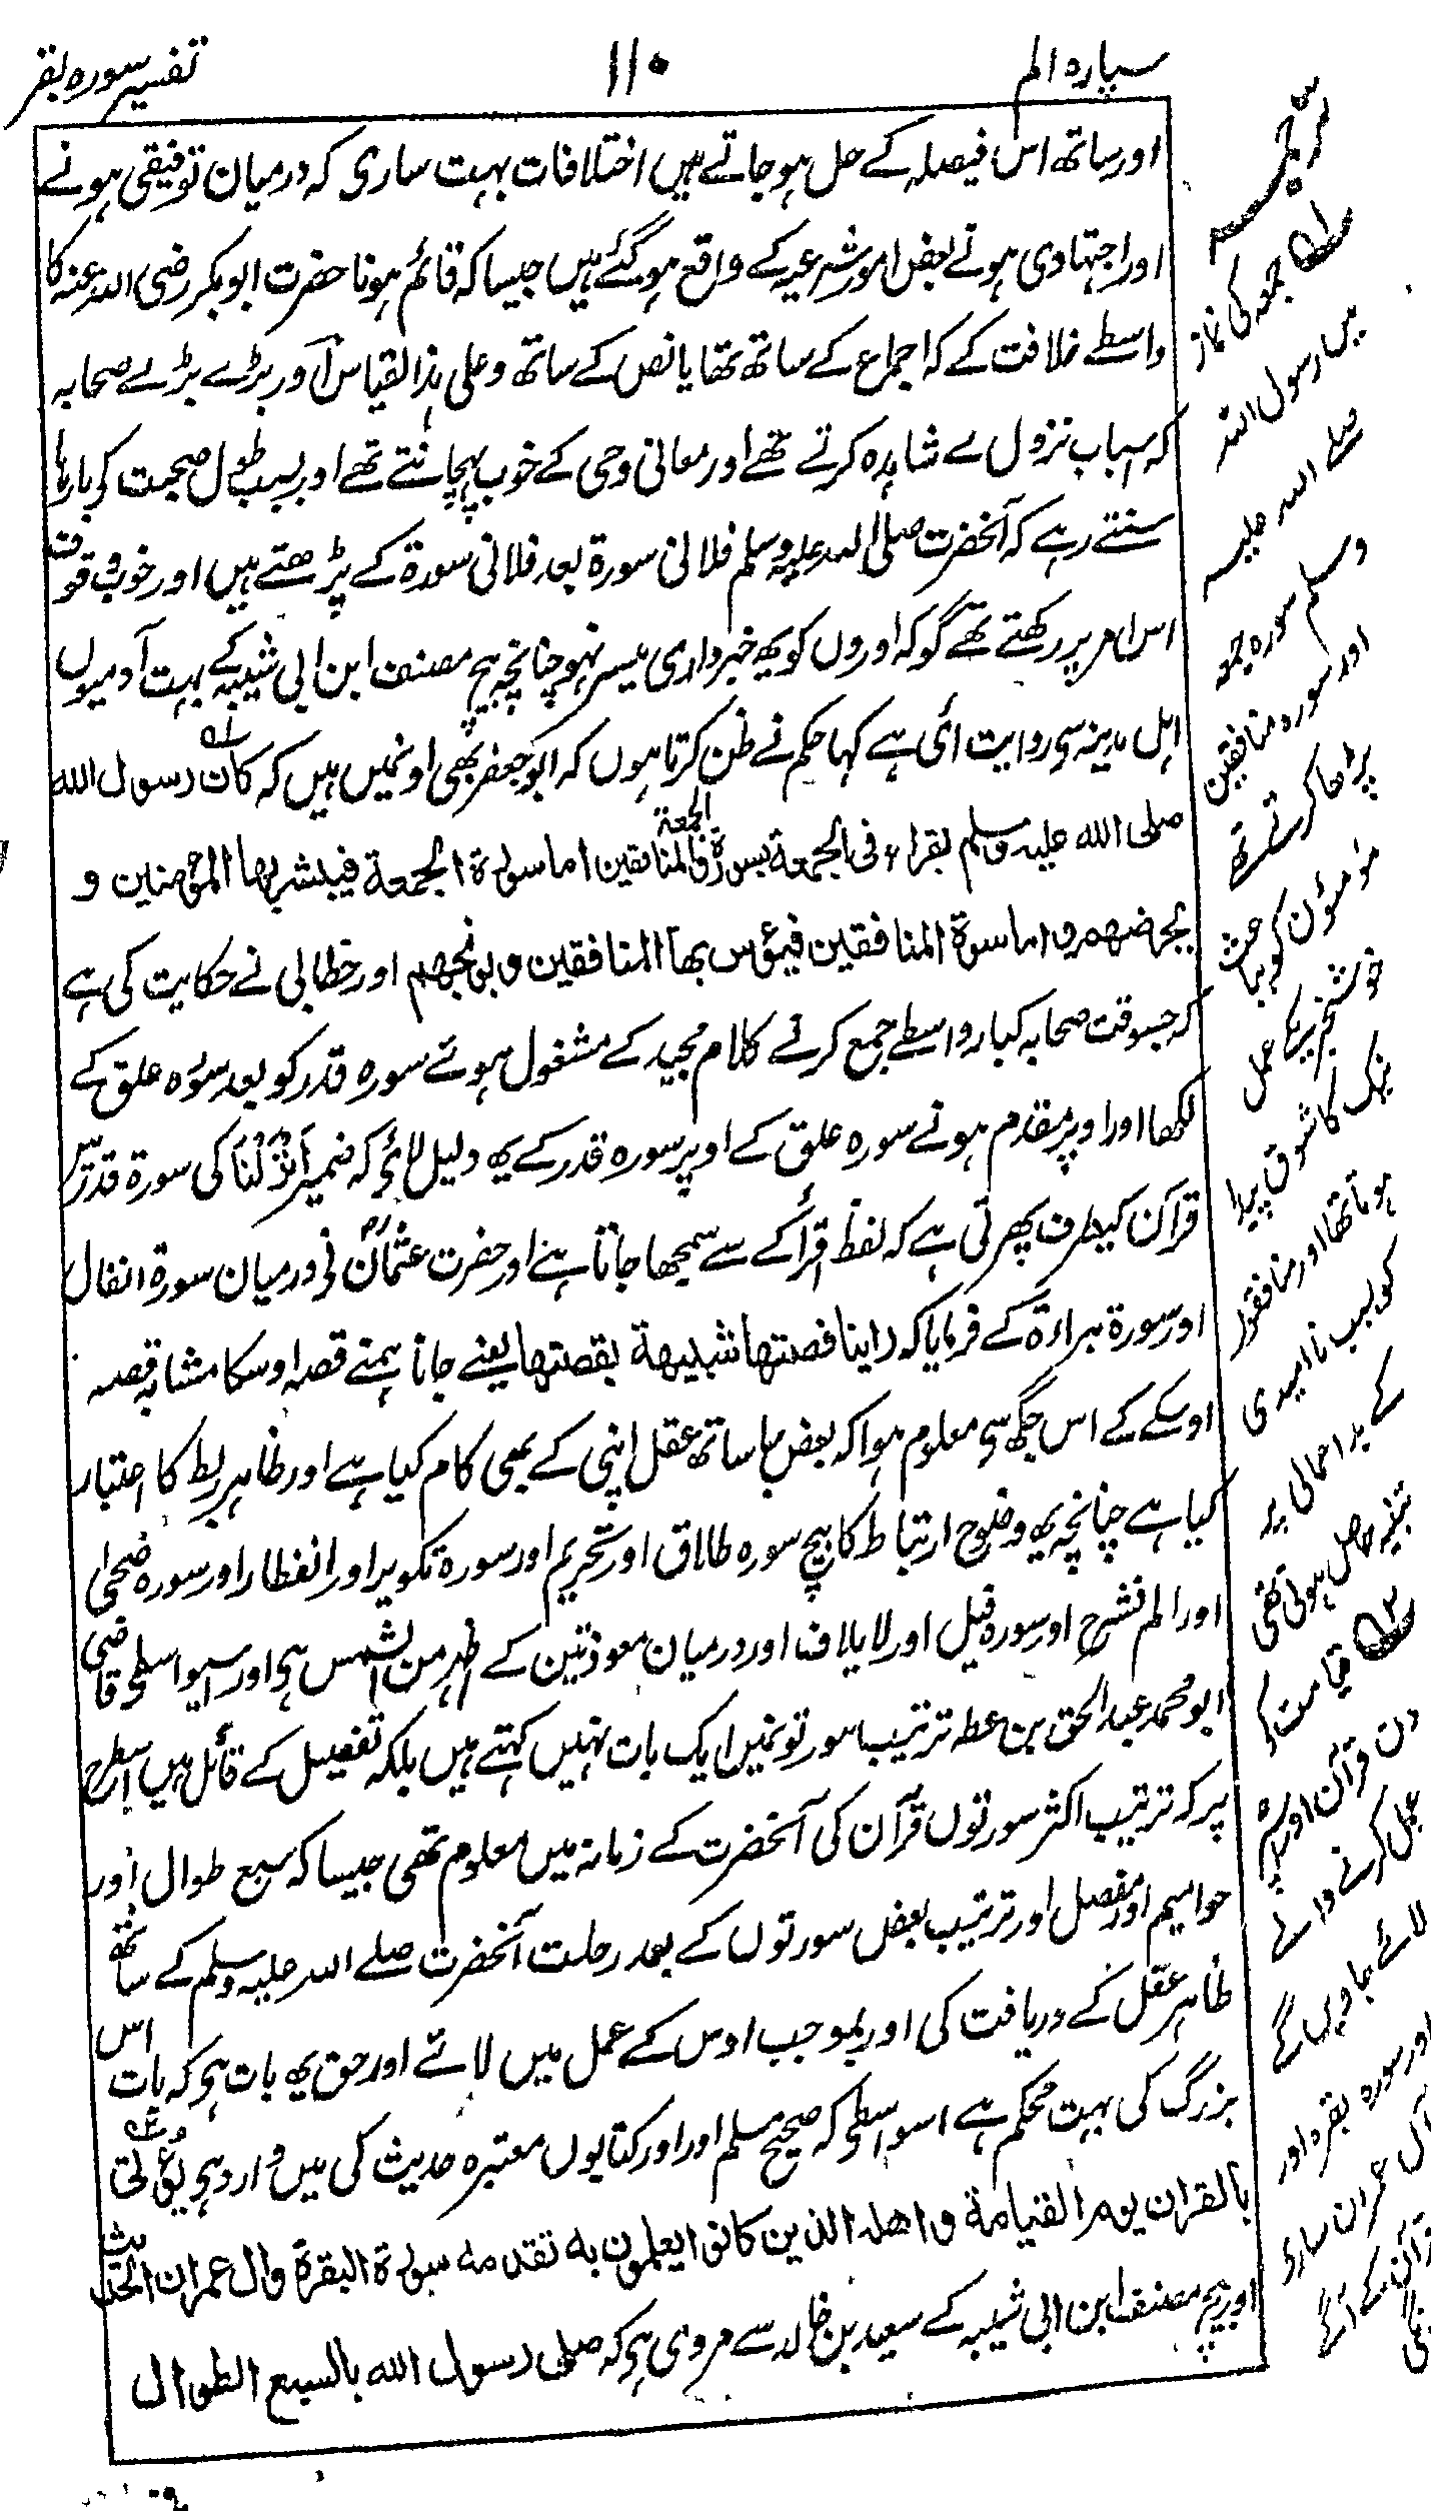 سیپارہ الم
۱۱۰
تفسیر سورہ بقر
اور ساتھ اس فیصلہ کے حل ہو جاتے ہیں اختلافات بہت ساری کہ درمیان توفیقی ہونے
اور اجتہادی ہونے بعض امور شرعیہ کے واقع ہو گئے ہیں جیسا کہ قائم ہونا حضرت ابوبکر رضی اللہ عنہ کا
واسطے خلافت کے کہ اجماع کے ساتھ تھا یا نص کے ساتھ وعلی ہذا القیاس اور بڑے بڑے صحابہ
کہ اسباب نزول سے شاہدہ کرتے تھے اور معانی وحی کے خوب پہچانتے تھے اور بسبب طول صحبت کی بارہا
سنتے رہے کہ آنحضرت صلی اللہ علیہ وسلم فلانی سورۃ بعد فلانی سورۃ کے پڑھتے ہیں اور خوب وقوف
اس امر پر رکھتے تھے گو کہ اوروں کو یہ خبرداری میسر نہو چنانچہ بیچ مصنف ابن ابی شیبہ کے بہت آدمیوں
اہل مدینہ سی روایت ائی ہے کہا حکم نے ظن کرتا ہوں کہ ابو جعفر بھی اونمیں ہیں کہ کان رسول الله
صلی الله علیه وسلم یقراء فی الجمعة بسورة الجمعة والمنافقین اما سورة الجمعة فیبشر بها المؤمنین و
یحرضهم و اما سورة المنافقین فیؤس بها المنافقین و یوبخهم اور خطابی نے حکایت کی ہے
کہ جسوقت صحابہ کبار واسطے جمع کرنے کلام مجید کے مشغول ہوئے سورہ قدر کو بعد سورہ علق کے
لکھا اور اوپر مقدم ہونے سورہ علق کے اوپر سورہ قدر کے یہ دلیل لائی کہ ضمیر اَنْزَلْنَا کی سورۃ قدر میں
قرآن کیطرف پھرتی ہے کہ لفظ اقرأ کے سے سمجھا جاتا ہے اور حضرت عثمانؓ نی درمیان سورۃ انفال
اور سورۃ براءۃ کے فرمایا کہ راینا قصتها شبیهة بقصتها یعنے جانا ہمنے قصہ اوسکا مشابہ قصہ
اوسکے کے اس جگھ سی معلوم ہوا کہ بعض جا ساتھ عقل اپنی کے بھی کام کیا ہے اور ظاہر ربط کا اعتبار
کیا ہے چنانچہ یہ وضوح ارتباط کا بیچ سورہ طلاق اور تحریم اور سورۃ تکویر اور انفطار اور سورہ ضحی
اور الم نشرح اور سورہ فیل اور لایلاف اور درمیان معوذتین کے اظہر من الشمس ہی اور سیواسطی قاضی
ابو محمد عبد الحق بن عطہ ترتیب سورتونمیں ایک بات نہیں کہتے ہیں بلکہ تفصیل کے قائل ہیں اسطرح
پر کہ ترتیب اکثر سورتوں قرآن کی آنحضرت کے زمانہ میں معلوم تھی جیسا کہ سبع طوال اور
حوامیم اور مفصل اور ترتیب بعض سورتوں کے بعد رحلت آنحضرت صلے اللہ علیہ وسلم کے ساتھ
ظاہر عقل کے دریافت کی اور بموجب اوس کے عمل میں لائے اور حق یہ بات ہی کہ بات اس
بزرگ کی بہت محکم ہے اسواسطی کہ صحیح مسلم اور اور کتابوں معتبرہ حدیث کی میں وارد ہی یؤتی
بالقران یوم القیامة و اهله الذین کانوا یعملون به تقدمه سورة البقرة وال عمران الحدیث
اور بیچ مصنف ابن ابی شیبہ کے سعید بن خالد سے مروی ہی کہ صلی رسول الله بالسبع الطوال
ترجمہ
جمعہ کی نماز
میں رسول اللہ
صلے اللہ علیہ
وسلم سورہ جمعہ
اور سورہ منافقین
پڑھا کرتے تھے
مومنون کو بباعث
خوشخبری کے عمل
نیک کا شوق پیدا
ہوتا تھا اور منافقوں
کو بسبب ناامیدی
کے بد اعمالی پر
تنبیہ حاصل ہوتی تھی
قیامت کے
دن قرآن اور اسپر
عمل کرنے والے
لائے جاویں گے
اور سورہ بقرہ اور
آل عمران سارے
قرآن کے آگے